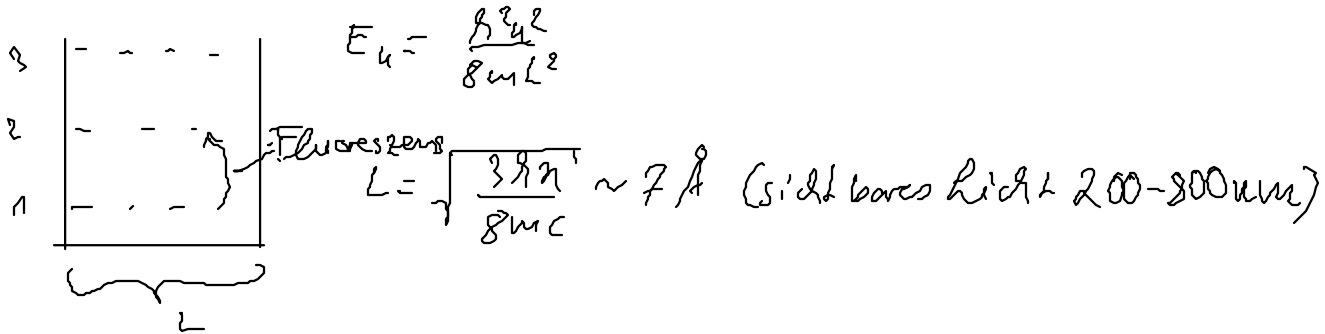 3
E_n = h²n² / 8mL²
2
Fluoreszens
L = √(3hλ / 8mc) ~ 7 Å (sichtbares Licht 200-800nm)
1
L